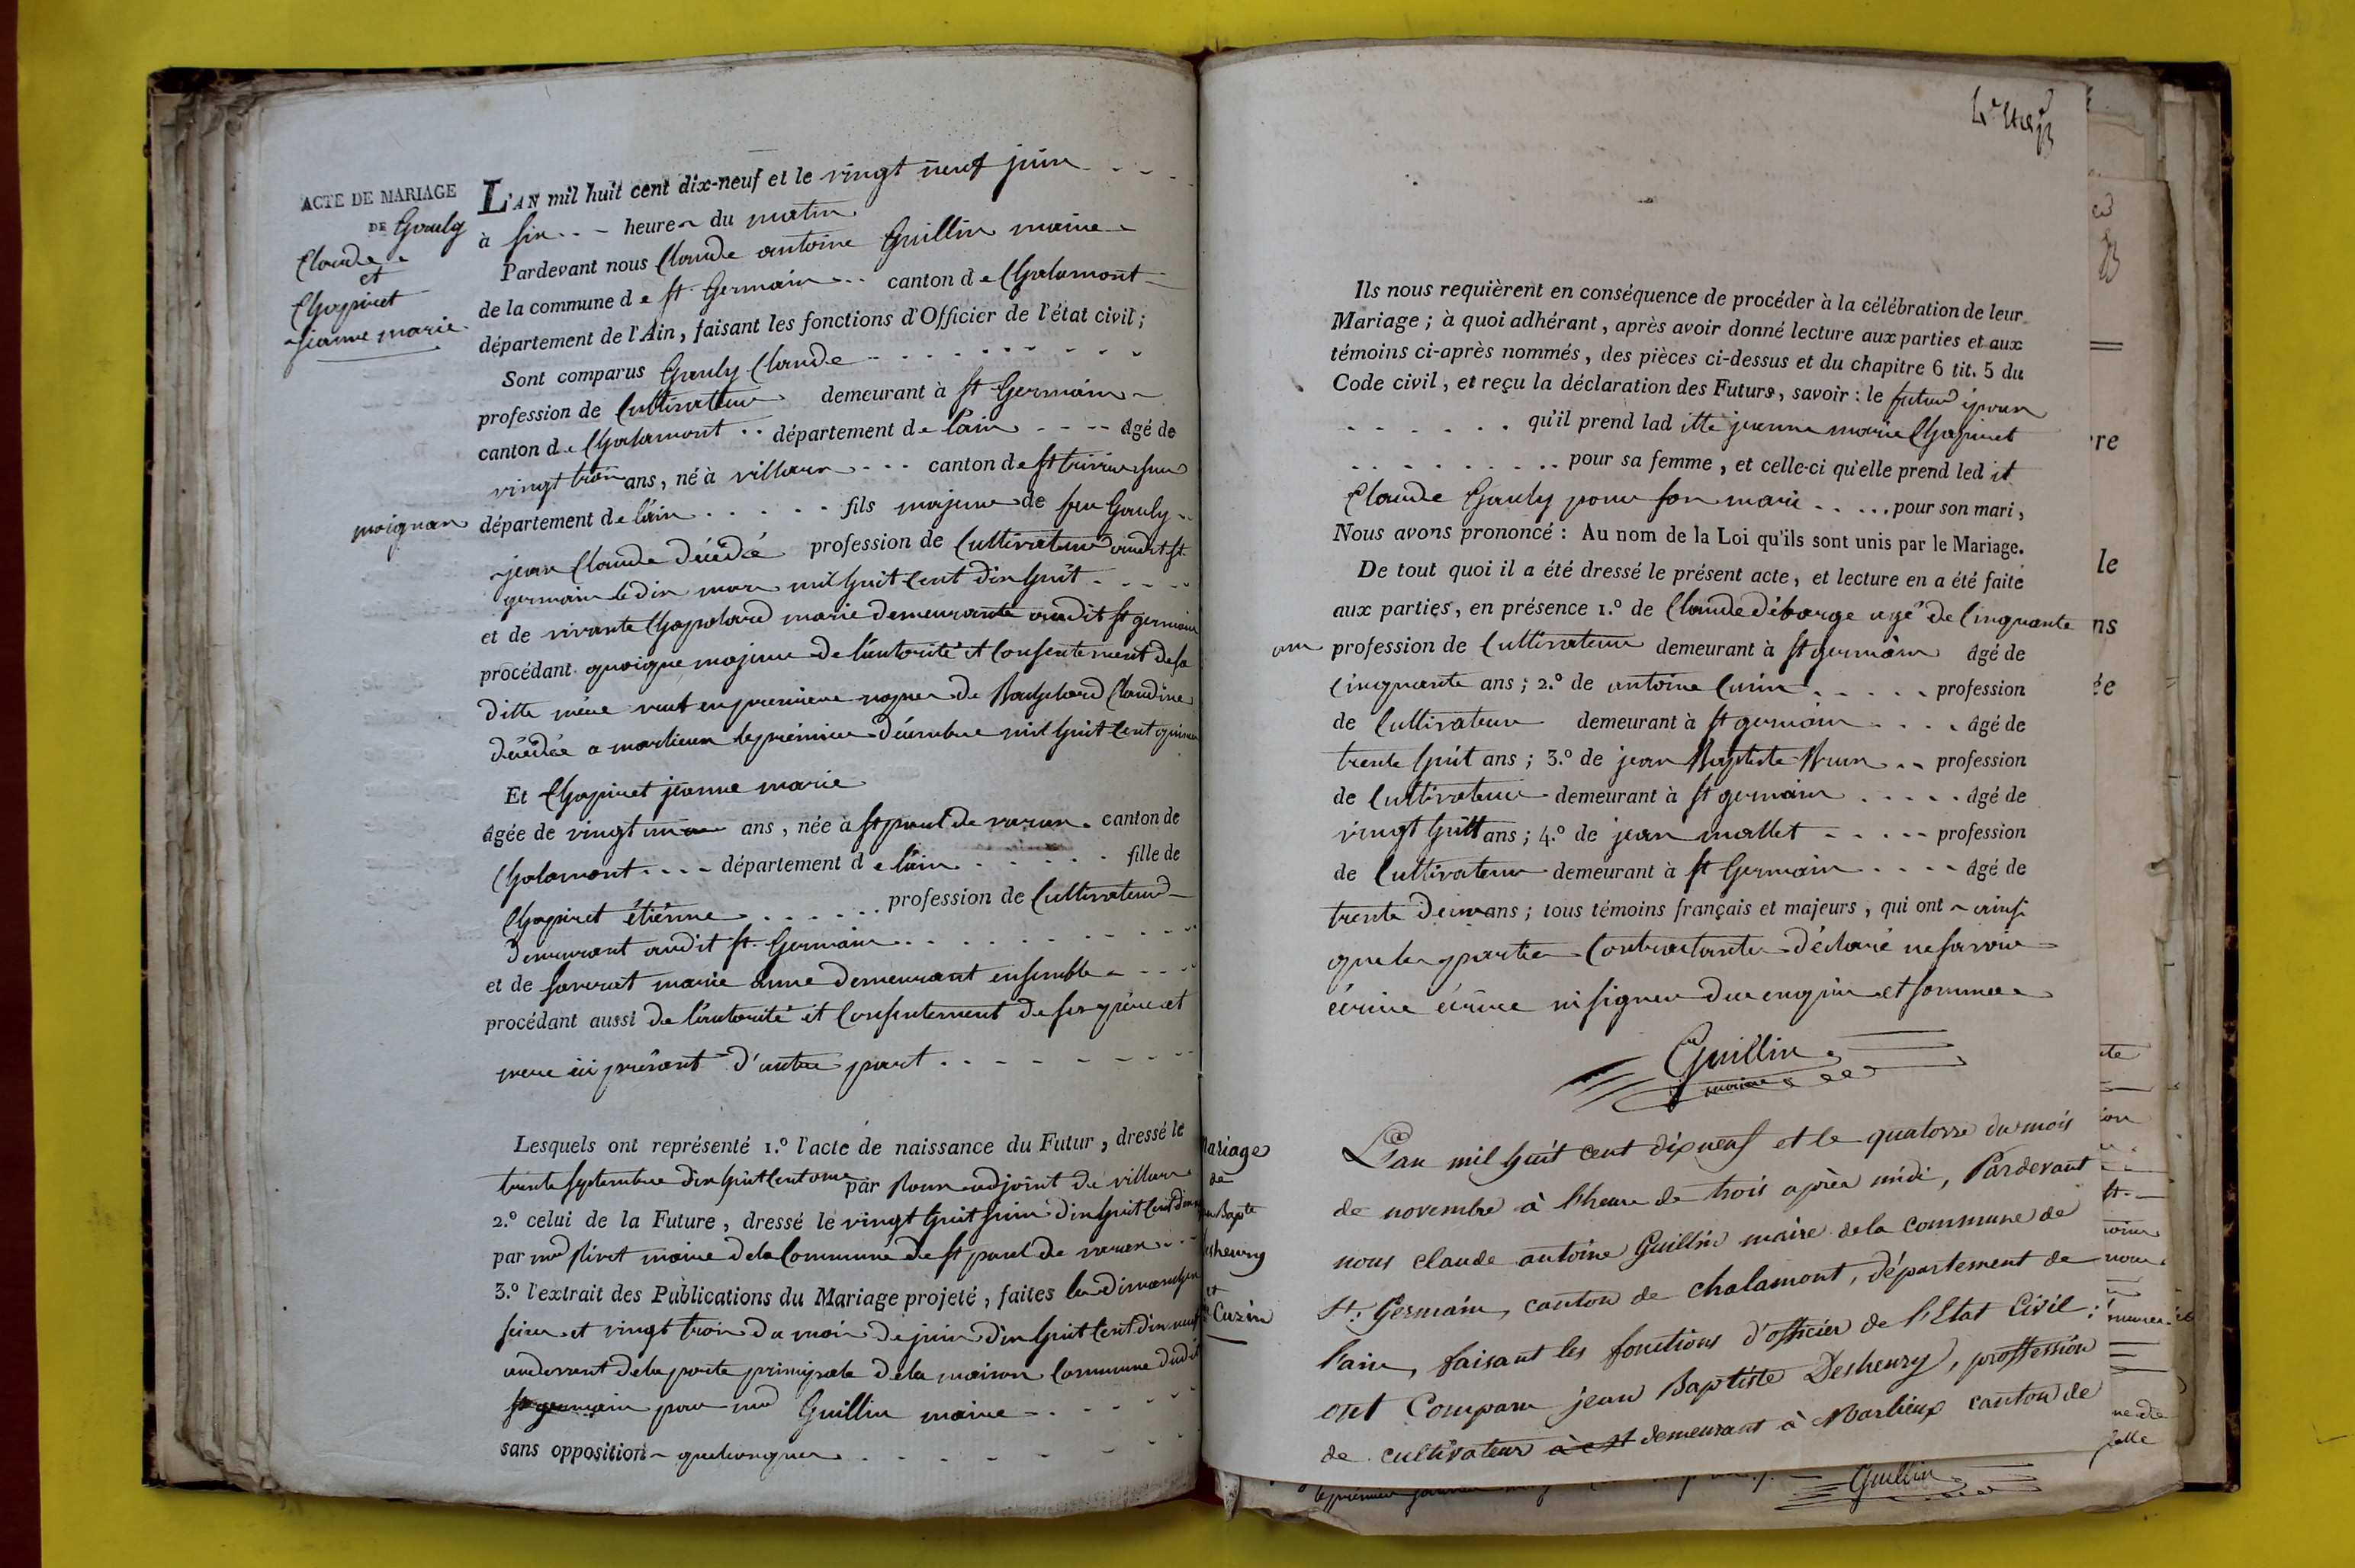 ACTE DE MARIAGE
DE Gouly
Claude
et
Chapiret
jeanne marie
L'AN mil huit cent dix-neuf et le vingt neuf juin
à six heures du matin
Pardevant nous Claude antoine Guillin maire
de la commune de St. Germain canton de Chalamont
département de l'Ain, faisant les fonctions d'Officier de l'état civil;
Sont comparus Gouly Claude
profession de Cultivateur demeurant à St Germain
canton de Chalamont département de l'ain âgé de
vingt trois ans, né à villars canton de St trivier sur
moignan département de l'ain fils majeur de feu Gouly
jean Claude décédé profession de Cultivateur audit St
germain le dix mars mil huit Cent dix huit
et de vivante Chapolard marie demeurante audit St germain
procédant quoique majeur de l'autorité et Consentement de sa
ditte mère veuf en premiere nopces de Claudine
décédée a marlieux le premier décembre mil huit Cent quinze
Et Chapiret jeanne marie
âgée de vingt ans, née à St paul de varax canton de
Chalamont département de l'ain fille de
Chapiret étienne profession de Cultivateur
demeurant audit St. Germain
et de marie anne demeurant ensemble
procédant aussi de l'autorité et Consentement de ses père et
mere ici présent d'autre part
Lesquels ont représenté 1.º l'acte de naissance du Futur, dressé le
trente septembre dix huit Cent onze par Roux adjoint de villars
2.º celui de la Future, dressé le vingt huit juin dix huit Cent
par mr Rivet maire de la Commune de St paul de varax
3.º l'extrait des Publications du Mariage projeté, faites les dimanches
seize et vingt trois du mois de juin dix huit Cent dix neuf
audevant de la porte principale de la maison Commune dudit
St germain par mr Guillin maire
sans opposition quelconques
Ils nous requièrent en conséquence de procéder à la célébration de leur
Mariage; à quoi adhérant, après avoir donné lecture aux parties et aux
témoins ci-après nommés, des pièces ci-dessus et du chapitre 6 tit. 5 du
Code civil, et reçu la déclaration des Futurs, savoir: le futur époux
qu'il prend lad itte jeanne marie Chapiret
pour sa femme, et celle-ci qu'elle prend led it
Claude Gouly pour son mari pour son mari,
Nous avons prononcé: Au nom de la Loi qu'ils sont unis par le Mariage.
De tout quoi il a été dressé le présent acte, et lecture en a été faite
aux parties, en présence 1.º de Claude débarge agé de Cinquante
ans profession de Cultivateur demeurant à St germain âgé de
Cinquante ans; 2.º de antoine Cuzin profession
de Cultivateur demeurant à St germain âgé de
trente huit ans; 3.º de jean Baptiste Brun profession
de Cultivateur demeurant à St germain âgé de
vingt huit ans; 4.º de jean mallet profession
de Cultivateur demeurant à St Germain âgé de
trente deux ans; tous témoins français et majeurs, qui ont ainsi
que les parties Contractantes déclaré ne savoir
écrire écrire ni signer de ce enquis et sommés
Guillin
maire
Mariage
de
Bapte
Desheury
et
Cuzin
L'an mil huit cent dix neuf et le quatorze du mois
de novembre à l'heure de trois après midi, Pardevant
nous claude antoine Guillin maire de la commune de
St. Germain, canton de chalamont, département de
l'ain, faisant les fonctions d'officier de l'Etat Civil;
ont Comparu jean Baptiste Desheury, proffession
de cultivateur demeurant à Marlieux canton de
Guillin